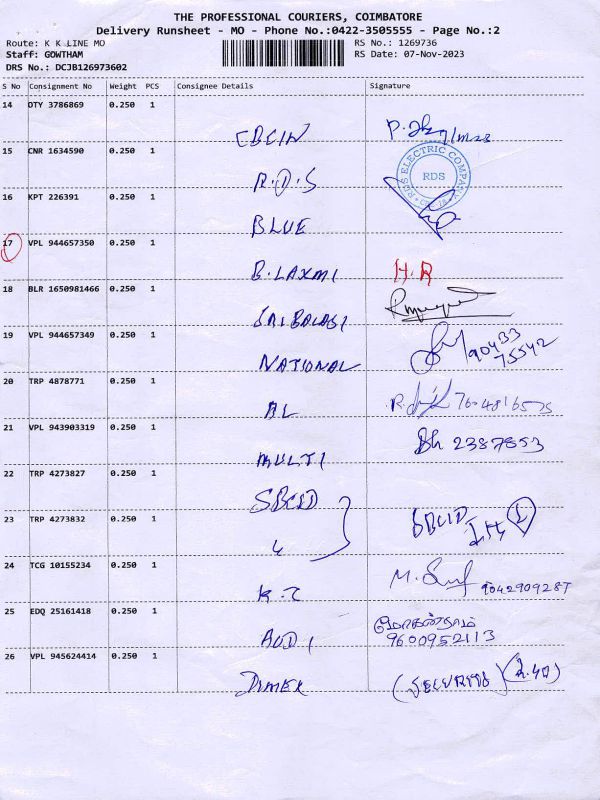 THE PROFESSIONAL COURIERS, COIMBATORE
Delivery Runsheet - MO - Phone No.:0422-3505555 - Page No.:2
Route: K K LINE MO RS No.: 1269736
Staff: GOWTHAM RS Date: 07-Nov-2023
DRS No.: DCJB126973602
S No Consignment No Weight PCS Consignee Details Signature
14 OTY 3786869 0.250 1
CBCID
15 CNR 1634590 0.250 1
RDS ELECTRIC COMPANY
RDS
R.D.S
16 KPT 226391 0.250 1
BLUE
17 VPL 944657350 0.250 1
B.LAXMI H.R
18 BLR 1650981466 0.250 1
SRI BALAGI
19 VPL 944657349 0.250 1
90433
75542
NATIONAL
20 TRP 4878771 0.250 1
AL
21 VPL 943903319 0.250 1
Bh 2387853
MULTI
22 TRP 4273827 0.250 1
SBCID
23 TRP 4273832 0.250 1
SBCID
24 TCG 10155234 0.250 1
M. 9042909287
K.C
25 EDQ 25161418 0.250 1
மோகன்தாஸ்
9600952113
AUDI
26 VPL 945624414 0.250 1
(2.40)
DIMEX